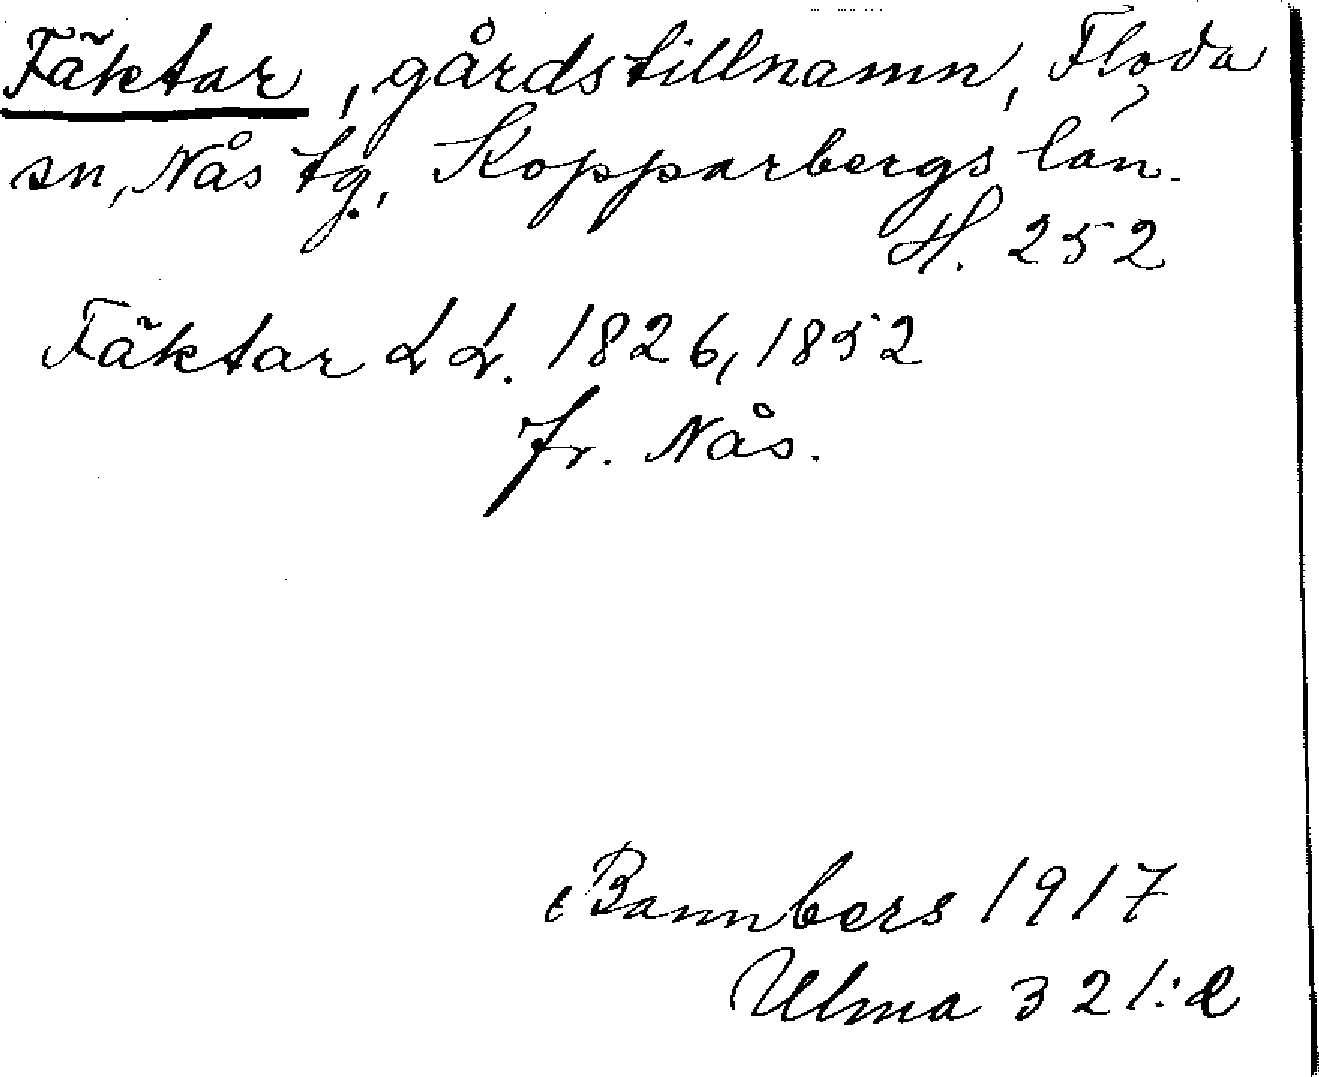 Fäktar, gårdstillnamn, Floda
sn, Nås tg, Kopparbergs län.
H. 252
Fäktar LL. 1826, 1852
Fr. Nås.
Bannbers 1917
Ulma 321:2